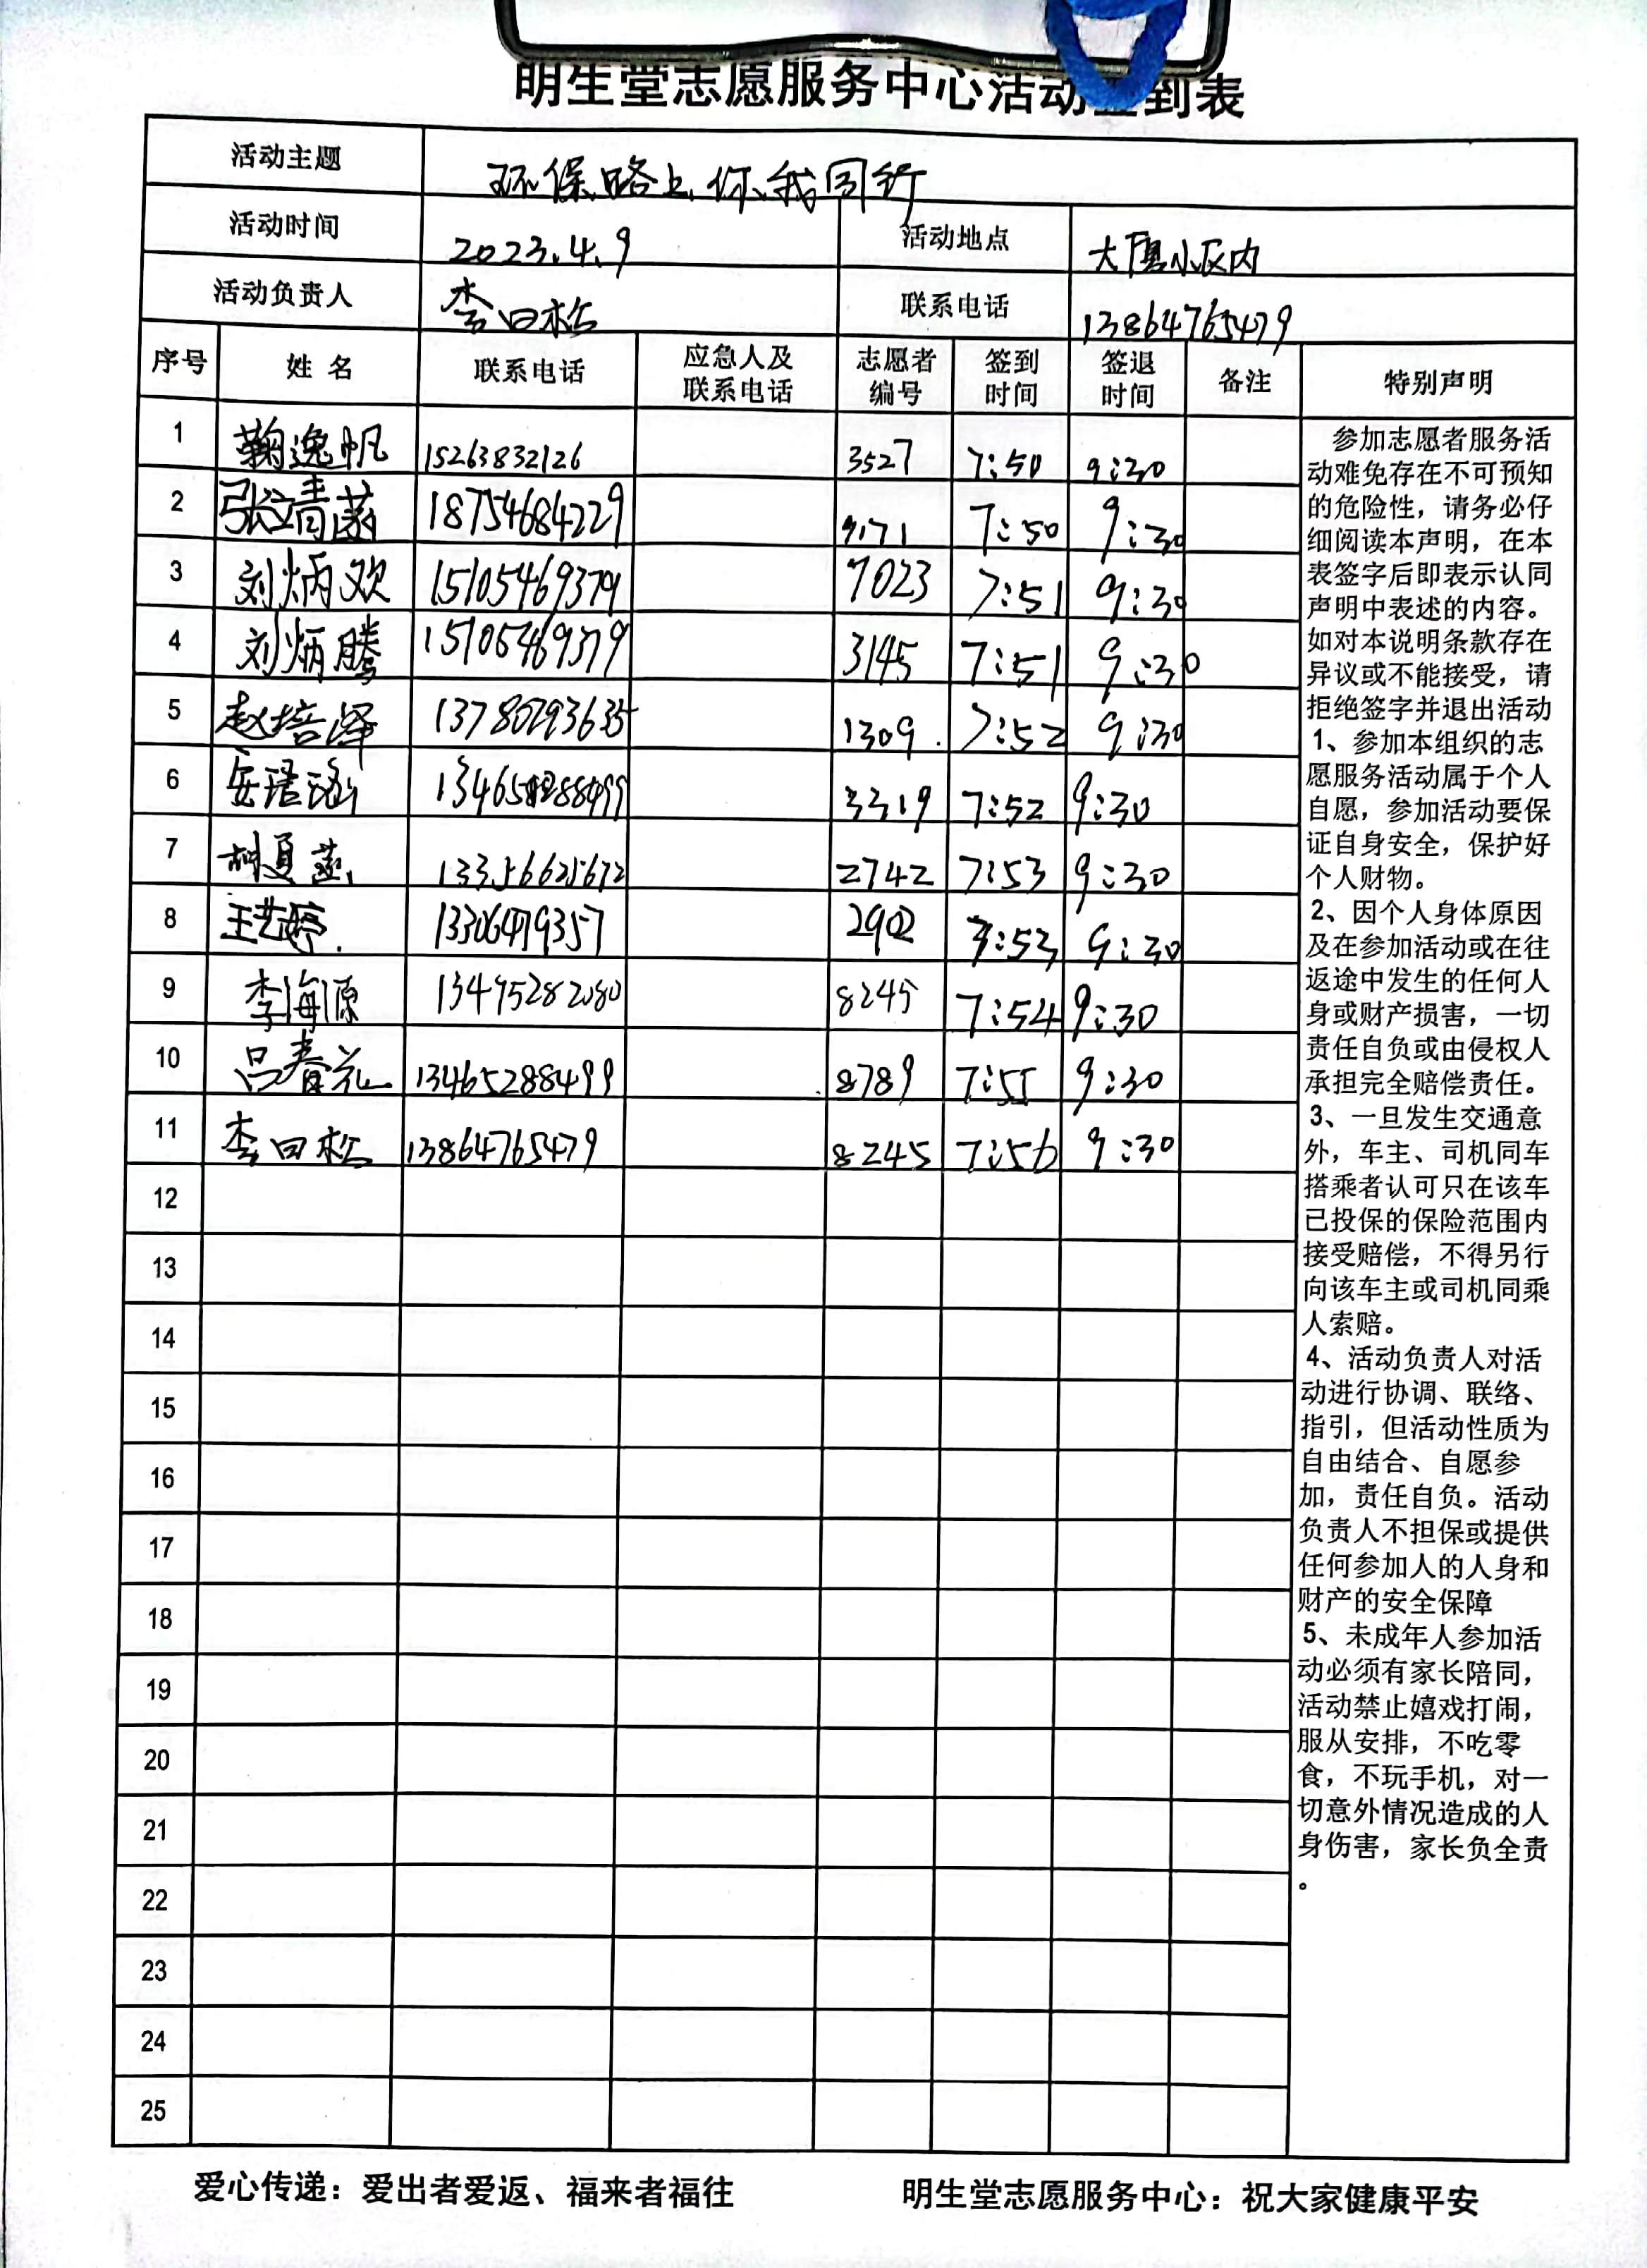 明生堂志愿服务中心活动签到表
活动主题 环保路上你我同行
活动时间 2023.4.9 活动地点 大唐小区内
活动负责人 李田松 联系电话 13864765479
序号 姓名 联系电话 应急人及联系电话 志愿者编号 签到时间 签退时间 备注 特别声明
1 鞠逸帆 15263832126 3527 7:50 9:30
2 张文菁菡 18754684229 9171 7:50 9:30
3 刘炳欢 15105469379 7023 7:51 9:30
4 刘炳腾 15105469379 3145 7:51 9:30
5 赵培泽 13780793635 1309 7:52 9:30
6 3319 7:52 9:30
7 胡夏燕 13356625672 2742 7:53 9:30
8 王艺婷 13306479357 2902 7:53 9:30
9 李海源 13495282080 8245 7:54 9:30
10 吕春花 13465288499 8789 7:55 9:30
11 李田松 13864765479 8245 7:56 9:30
12
13
14
15
16
17
18
19
20
21
22
23
24
25
参加志愿者服务活
动难免存在不可预知
的危险性，请务必仔
细阅读本声明，在本
表签字后即表示认同
声明中表述的内容。
如对本说明条款存在
异议或不能接受，请
拒绝签字并退出活动
1、参加本组织的志
愿服务活动属于个人
自愿，参加活动要保
证自身安全，保护好
个人财物。
2、因个人身体原因
及在参加活动或在往
返途中发生的任何人
身或财产损害，一切
责任自负或由侵权人
承担完全赔偿责任。
3、一旦发生交通意
外，车主、司机同车
搭乘者认可只在该车
已投保的保险范围内
接受赔偿，不得另行
向该车主或司机同乘
人索赔。
4、活动负责人对活
动进行协调、联络、
指引，但活动性质为
自由结合、自愿参
加，责任自负。活动
负责人不担保或提供
任何参加人的人身和
财产的安全保障
5、未成年人参加活
动必须有家长陪同，
活动禁止嬉戏打闹，
服从安排，不吃零
食，不玩手机，对一
切意外情况造成的人
身伤害，家长负全责
。
爱心传递：爱出者爱返、福来者福往 明生堂志愿服务中心：祝大家健康平安